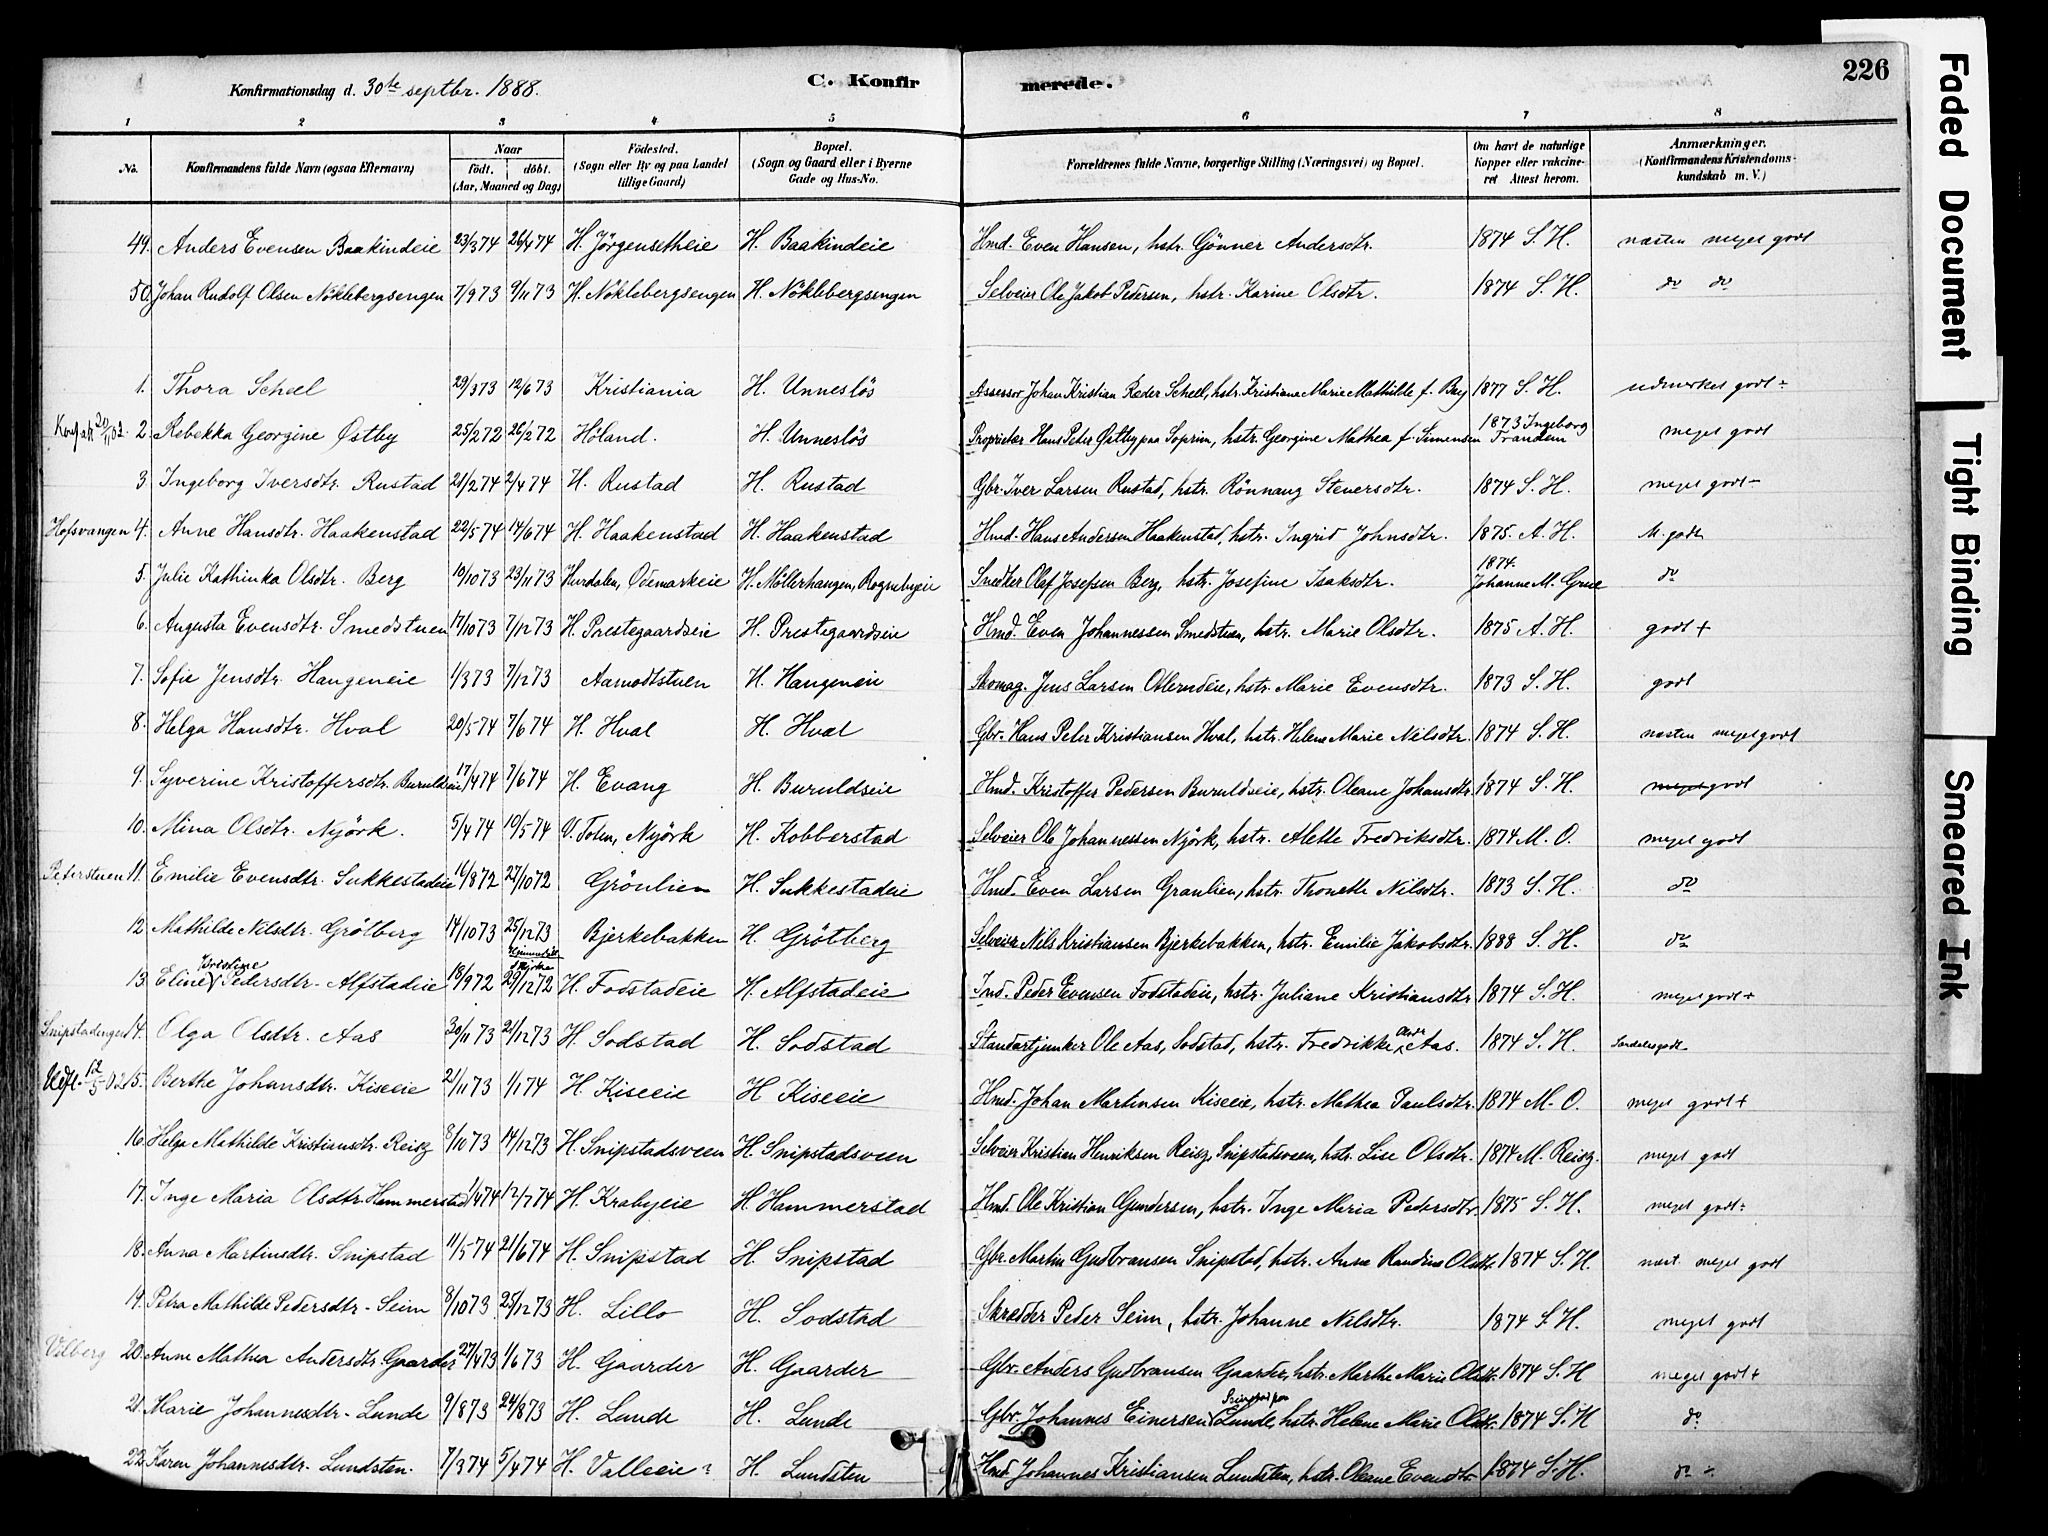 226
Konfirmationsdag d. 30te septbr. 1888. C. Konfirmerede.
1 2 3 4 5 6 7 8
No. Konfirmandens fulde Navn (ogsaa Efternavn) Naar födt. döbt. (Aar, Maaned og Dag) Födested. (Sogn eller By og paa Landet tillige Gaard) Bopæl. (Sogn og Gaard eller i Byerne Gade og Hus-No. Forældrenes fulde Navne, borgerlige Stilling (Næringsvei) og Bopæl. Om havt de naturlige Kopper eller vakcineret Attest herom. Anmærkninger. (Konfirmandens Kristendomskundskab m. V.)
49. Anders Evensen Baakindeie 23/3 74 26/4 74 H. Jörgensetheie H. Baakindeie Hmd. Even Hansen, hstr. Gönner Andersdtr. 1874 S. H. næsten meget godt
50. Johan Rudolf Olsen Nöklebergsengen 7/9 73 9/11 73 H. Nöklebergsengen H. Nöklebergsengen Selveier Ole Jakob Pedersen, hstr. Karine Olsdtr. 1874 S. H. do do
1. Thora Scheel 29/3 73 12/6 73 Kristiania H. Unneslös Assessor Johan Kristian Reder Scheel, hstr. Kristiane Marie Mathilde f. Bay 1877 S. H. udmerket godt -
2. Rebekka Georgine Østby 25/2 72 26/2 72 Höland. H. Unneslös Proprietær Hans Peter Østby paa Soprim, hstr. Georgine Mathea f. Simensen 1873 Ingeborg Trandem meget godt
3. Ingeborg Iversdtr. Rustad 21/2 74 2/4 74 H. Rustad H. Rustad Gbr. Iver Larsen Rustad, hstr. Rönnaug Steuersdtr. 1874 S. H. meget godt -
Hofsvangen 4. Anne Hansdtr. Haakenstad 22/5 74 14/6 74 H. Haakenstad H. Haakenstad Hmd. Hans Andersen Haakenstad, hstr. Ingrid Johnsdtr. 1875. A. H. M. godt
5. Julie Kathinka Olsdtr. Berg 19/10 73 23/11 73 Hurdalen, Ödemarkeie H. Möllerhaugen, Rognebyeie Snedker Olef Josefsen Berg, hstr. Josefine Isaksdtr. 1874. Johanne M. Grue do
6. Augusta Evensdtr. Smedstuen 17/10 73 7/12 73 H. Prestegaardseie H. Prestegaardseie Hmd. Even Johannessen Smedstuen, hstr. Marie Olsdtr. 1875 A. H. godt +
7. Sofie Jensdtr. Haugeneie 1/3 73 7/12 73 Aamodtstuen H. Haugeneie Skomag. Jens Larsen Otlerudeie, hstr. Marie Evensdtr. 1873 S. H. godt
8. Helga Hansdtr. Hval 20/5 74 7/6 74 H. Hval H. Hval Gbr. Hans Peter Kristiansen Hval, hstr. Helene Marie Nilsdtr. 1874 S. H. næsten meget godt
9. Syverine Kristoffersdtr. Buruldseie 17/4 74 7/6 74 H. Evang H. Buruldseie Hmd. Kristoffer Pedersen Buruldseie, hstr. Oleane Johansdtr. 1874 S. H. meget godt
10. Mina Olsdtr. Nyörk. 5/4 74 10/5 74 V. Toten, Nyörk H. Kobberstad Selveier Ole Johannessen Nyörk, hstr. Alette Fredriksdtr. 1874 M. O. meget godt
Peterstuen 11. Emilie Evensdtr. Sukkestadeie 16/8 72 27/10 72 Grönlien H. Sukkestadeie Hmd. Even Larsen Graulien, hstr. Thonette Nilsdtr. 1873 S. H. do
12. Mathilde Nilsdtr. Grötberg 14/10 73 25/12 73 Bjerkebakken H. Grötberg Selveier Nils Kristiansen Bjerkebakken, hstr. Emilie Jakobsdtr. 1888 S. H. do
13. Eline Kristine Pedersdtr. Alfstadeie 18/9 72 29/12 72 H. Fodstadeie H. Alfstadeie Ind. Peder Evensen Fodstadeie, hstr. Juliane Kristiansdtr 1874 S. H. meget godt +
14. Olga Olsdtr. Aas 30/11 73 21/12 73 H. Sodstad H. Sodstad Standartjunker Ole Aas, Sodstad, hstr. Fredrikke Aas. 1874 S. H. Særdeles godt
15. Berthe Johansdtr. Kiseeie 2/11 73 1/1 74 H. Kiseeie H Kiseeie Hmd. Johan Martinsen Kiseeie, hstr. Mathea Paulsdtr. 1874 M. O. meget godt +
16. Helga Mathilde Kristiansdtr. Reisz 8/10 73 14/12 73 H. Snipstadsveen H. Snipstadsveen Selveier Kristian Henriksen Reisz, Snipstadsveen, hstr. Lise Olsdtr. 1874 M. Reisz. meget godt
17. Inge Maria Olsdtr. Hammerstad 1/4 74 12/7 74 H. Krabyeie H. Hammerstad Hmd. Ole Kristian Gundersen, hstr. Inge Maria Pedersdtr. 1875 S. H. meget godt -
18. Anna Martinsdtr. Snipstad 11/5 74 21/6 74 H. Snipstad H. Snipstad Gbr. Martin Gudbransen Snipstad, hstr. Anne Randine Olsdtr. 1874 S. H. næst. meget godt
19. Petra Mathilde Pedersdtr. Seim 8/10 73 25/12 73 H. Lillo H. Sodstad Skrædder Peder Seim, hstr. Johanne Nilsdtr. 1874 S. H. meget godt
Vilberg 20. Anne Mathea Andersdtr. Gaarder 27/4 73 1/6 73 H. Gaarder H. Gaarder Gbr. Anders Gudbransen Gaarder, hstr. Marthe Marie Olsdtr. 1874 S. H meget godt +
21. Marie Johannesdtr. Lunde 9/8 73 24/8 73 H. Lunde H. Lunde Gbr. Johannes Einersen Lunde, hstr. Helene Marie Olsdtr. 1874 S. H do
22. Karen Johannesdtr. Lundsten. 7/3 74 5/4 74 H. Valleeie H. Lundsten Hmd. Johannes Kristiansen Lundsten, hstr. Oleane Evensdtr 1874 S. H. do +
Faded Document
Tight Binding
Smeared Ink